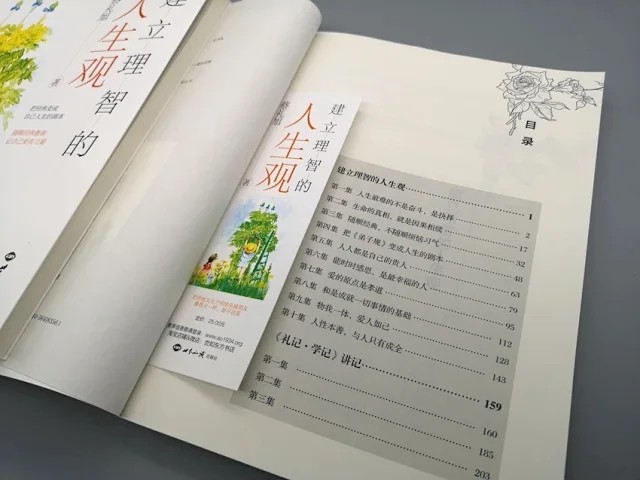 建立理智的
人生观
著
把经典变成
自己人生的剧本
建立理智的
人生观
著
定价：25.00元
目录
建立理智的人生观 1
第一集 人生最难的不是奋斗，是抉择 2
第二集 生命的真相，就是因果相续 17
第三集 随顺经典，不随顺烦恼习气 32
第四集 把《弟子规》变成人生的剧本 48
第五集 人人都是自己的贵人 63
第六集 能时时感恩，是最幸福的人 79
第七集 爱的原点是孝道 95
第八集 和是成就一切事情的基础 112
第九集 物我一体，爱人如己 128
第十集 人性本善，与人只有成全 143
《礼记·学记》讲记 159
第一集 160
第二集 185
第三集 203